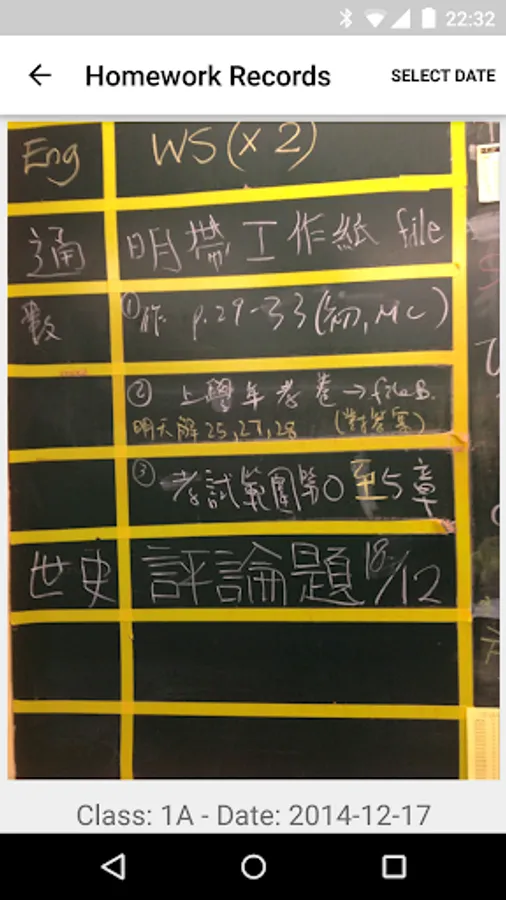 22:32
Homework Records
SELECT DATE
Eng WS (x2)
通 明帶工作紙 file
數 ① 作 p.29-33 (初, MC)
② 上學年考卷 → file B.
明天解 25, 27, 28 (對答案)
③ 考試範圍第0至5章
世史 評論題 18/12
Class: 1A - Date: 2014-12-17